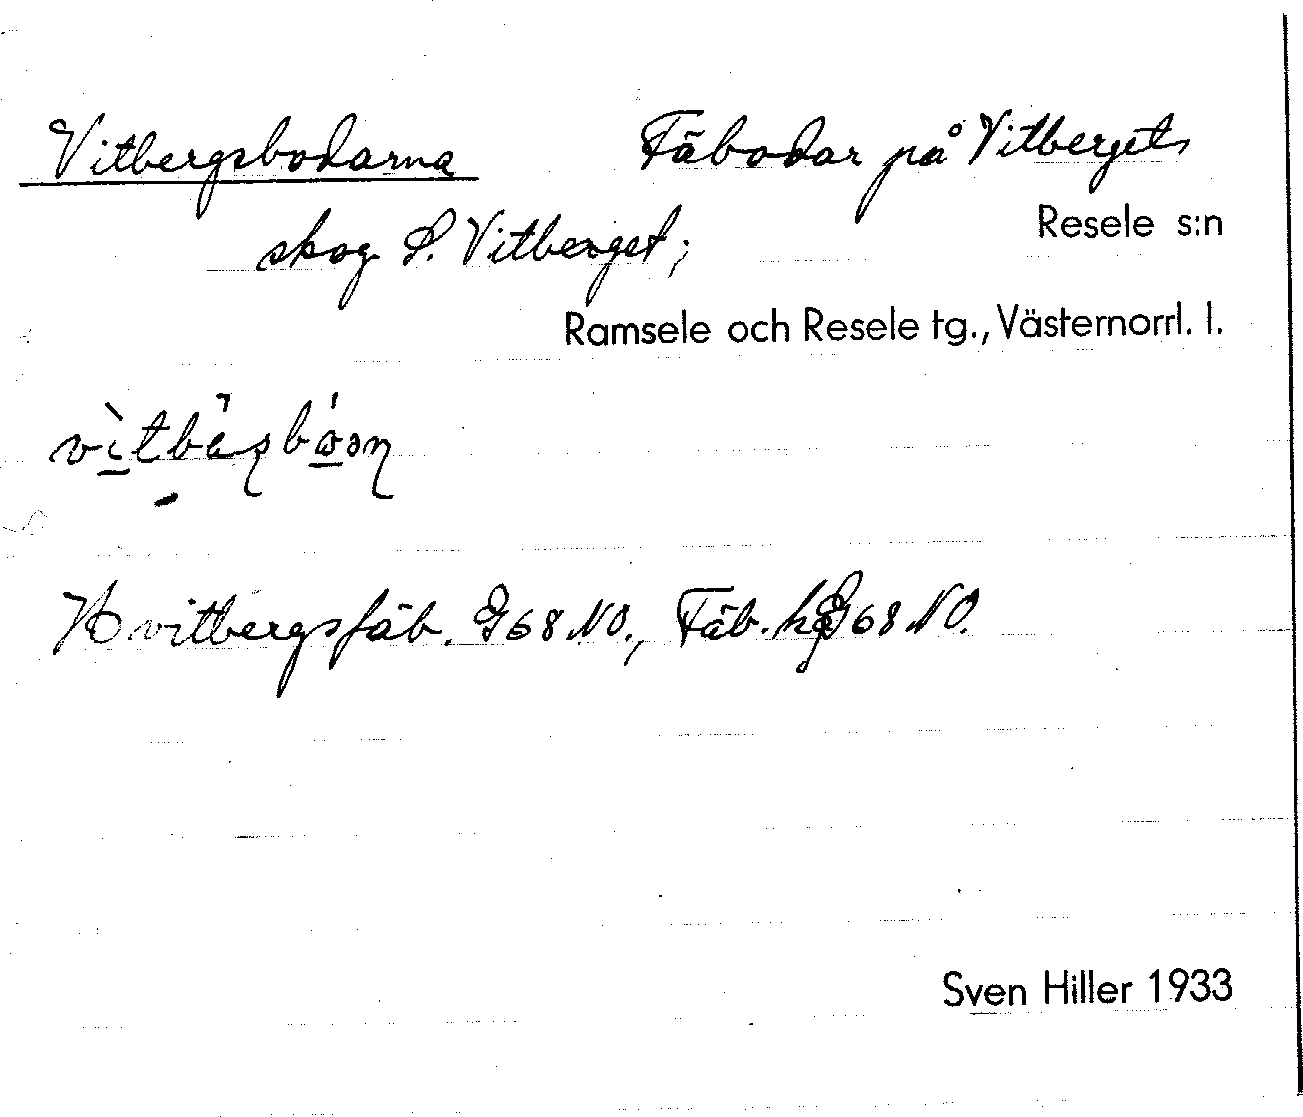 Vitbergsbodarna Fäbodar på Vitbergets
skog S. Vitberget;
Resele s:n
Ramsele och Resele tg., Västernorrl. l.
Hvitbergsfäb. G 68 NO., Fäb. hg G 68 NO.
Sven Hiller 1933